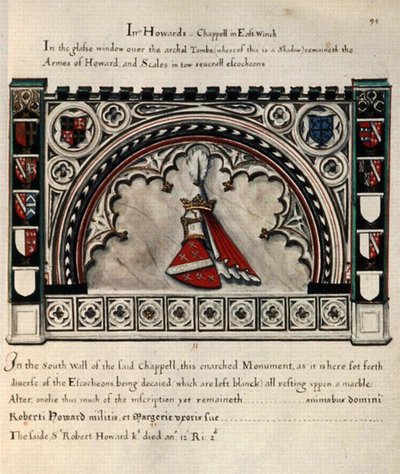 94
In Howards Chappell in East Winch
In the glasse window ouer the arched Tombe (whereof this is a Shadow) remaineth the
Armes of Howard, and Scales in tow seuerall escocheons
In the South wall of the said Chappell, this enarched Monument, as it is here set forth
diuerse of the Escocheons being decaied which are left blanck) all resting vppon a marble
Alter, onelie thus much of the inscription yet remaineth ........ animabus domini
Roberti Howard militis, et Margerie vxoris sue
The saide Sr Robert Howard kt died ano 12 Ri: 2d